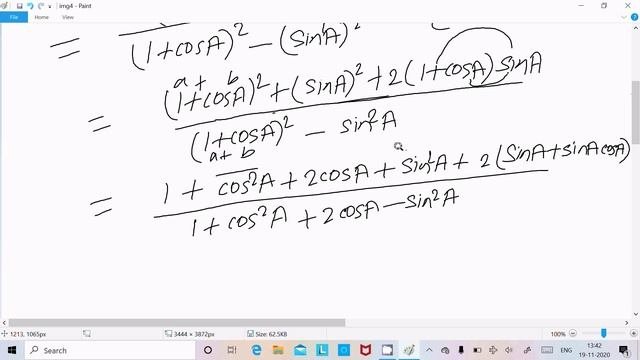 img4 - Paint
File Home View
= (1+cosA)² - (sinA)²
a + b
= (1+cosA)² + (sinA)² + 2(1+cosA) sinA
(1+cosA)² - sin²A
a + b
= 1 + cos²A + 2cosA + sin²A + 2(sinA+sinA cosA)
1 + cos²A + 2cosA - sin²A
1213, 1065px 3444 × 3872px Size: 62.5KB 100%
Search ENG 13:42
19-11-2020